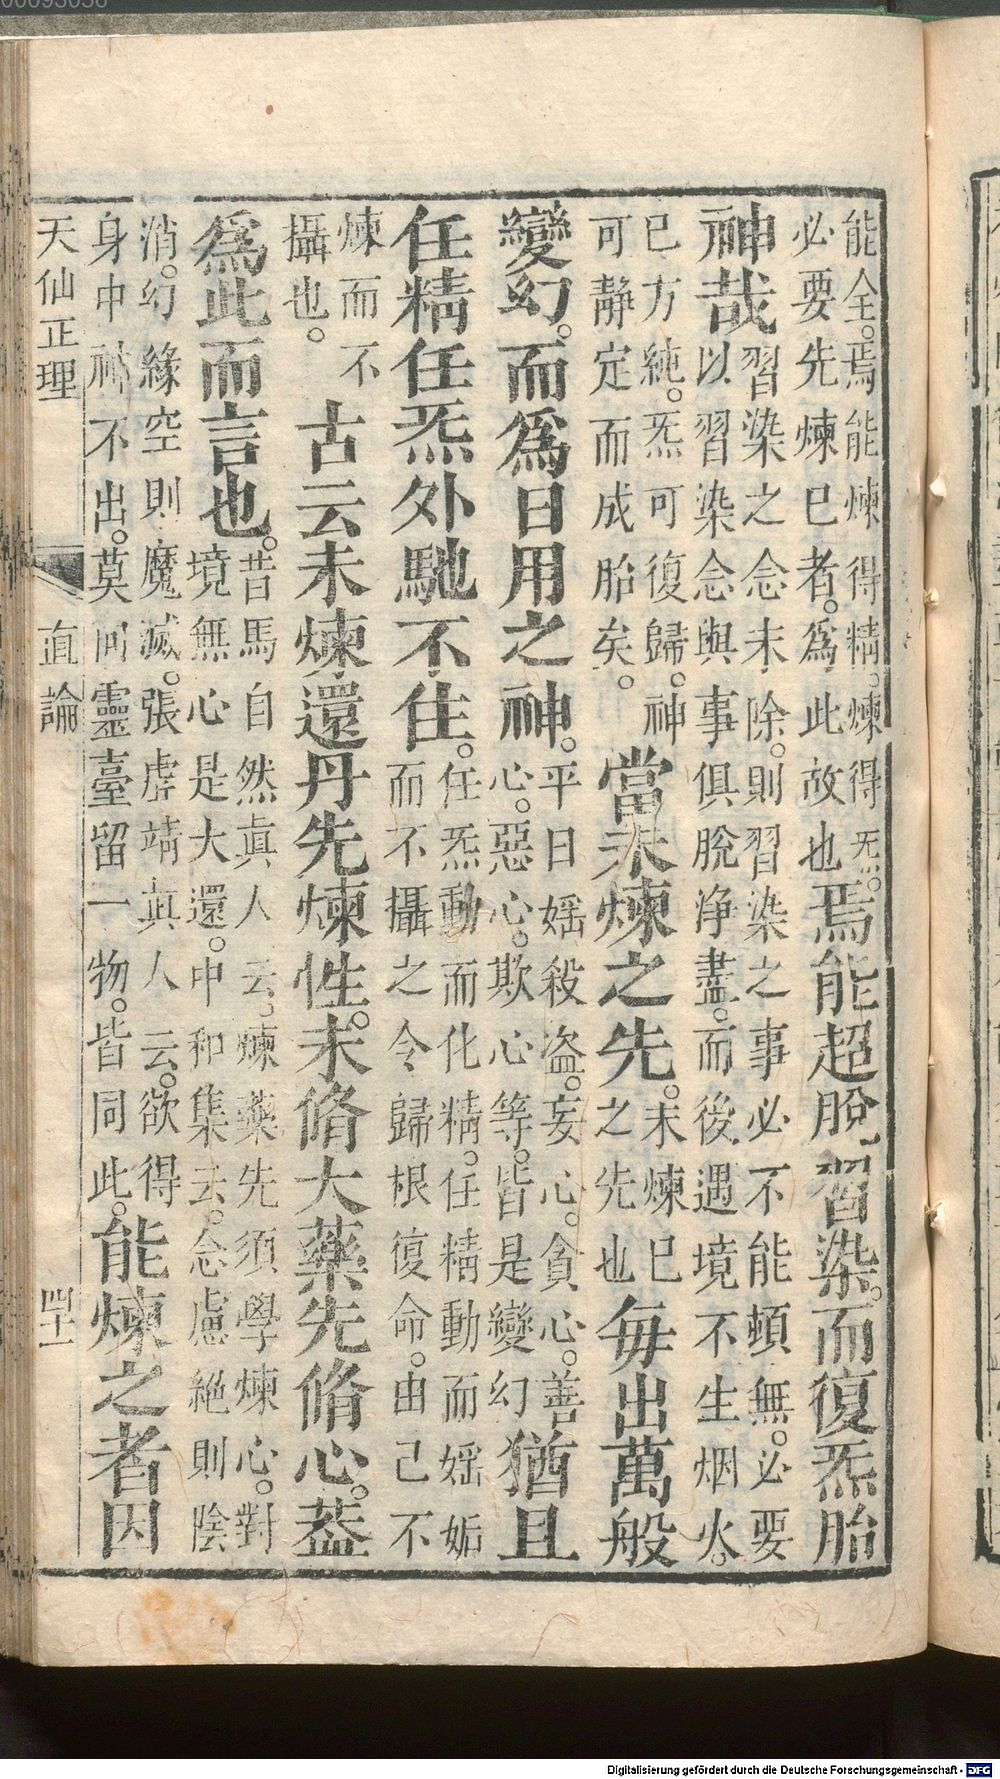 能全。焉能煉得精。煉得炁。
必要先煉巳者。爲此故也
焉能超脫習染。而復炁胎
神哉
習染之念未除。則習染之事必不能頓無。必要
以習染念與事俱脫净盡。而後遇境不生烟火。
巳方純。炁可復歸。神
可靜定而成胎矣。
當未煉之先。
未煉巳
之先也
毎出萬般
變幻。而爲日用之神。
平日婬殺盗。妄心。貪心。善
心。惡心。欺心等。皆是變幻
猶且
任精任炁外馳不住。
任炁動而化精。任精動而婬姤
而不攝之令歸根復命。由己不
煉而不
攝也。
古云未煉還丹先煉性。未脩大藥先脩心。葢
爲此而言也。
昔馬自然眞人云。煉藥先須學煉心。對
境無心是大還。中和集云。念慮絕則陰
消。幻緣空則魔滅。張虛靖眞人云。欲得
身中神不出。莫向靈臺留一物。皆同此。
能煉之者因
天仙正理
直論
Digitalisierung gefördert durch die Deutsche Forschungsgemeinschaft - DFG